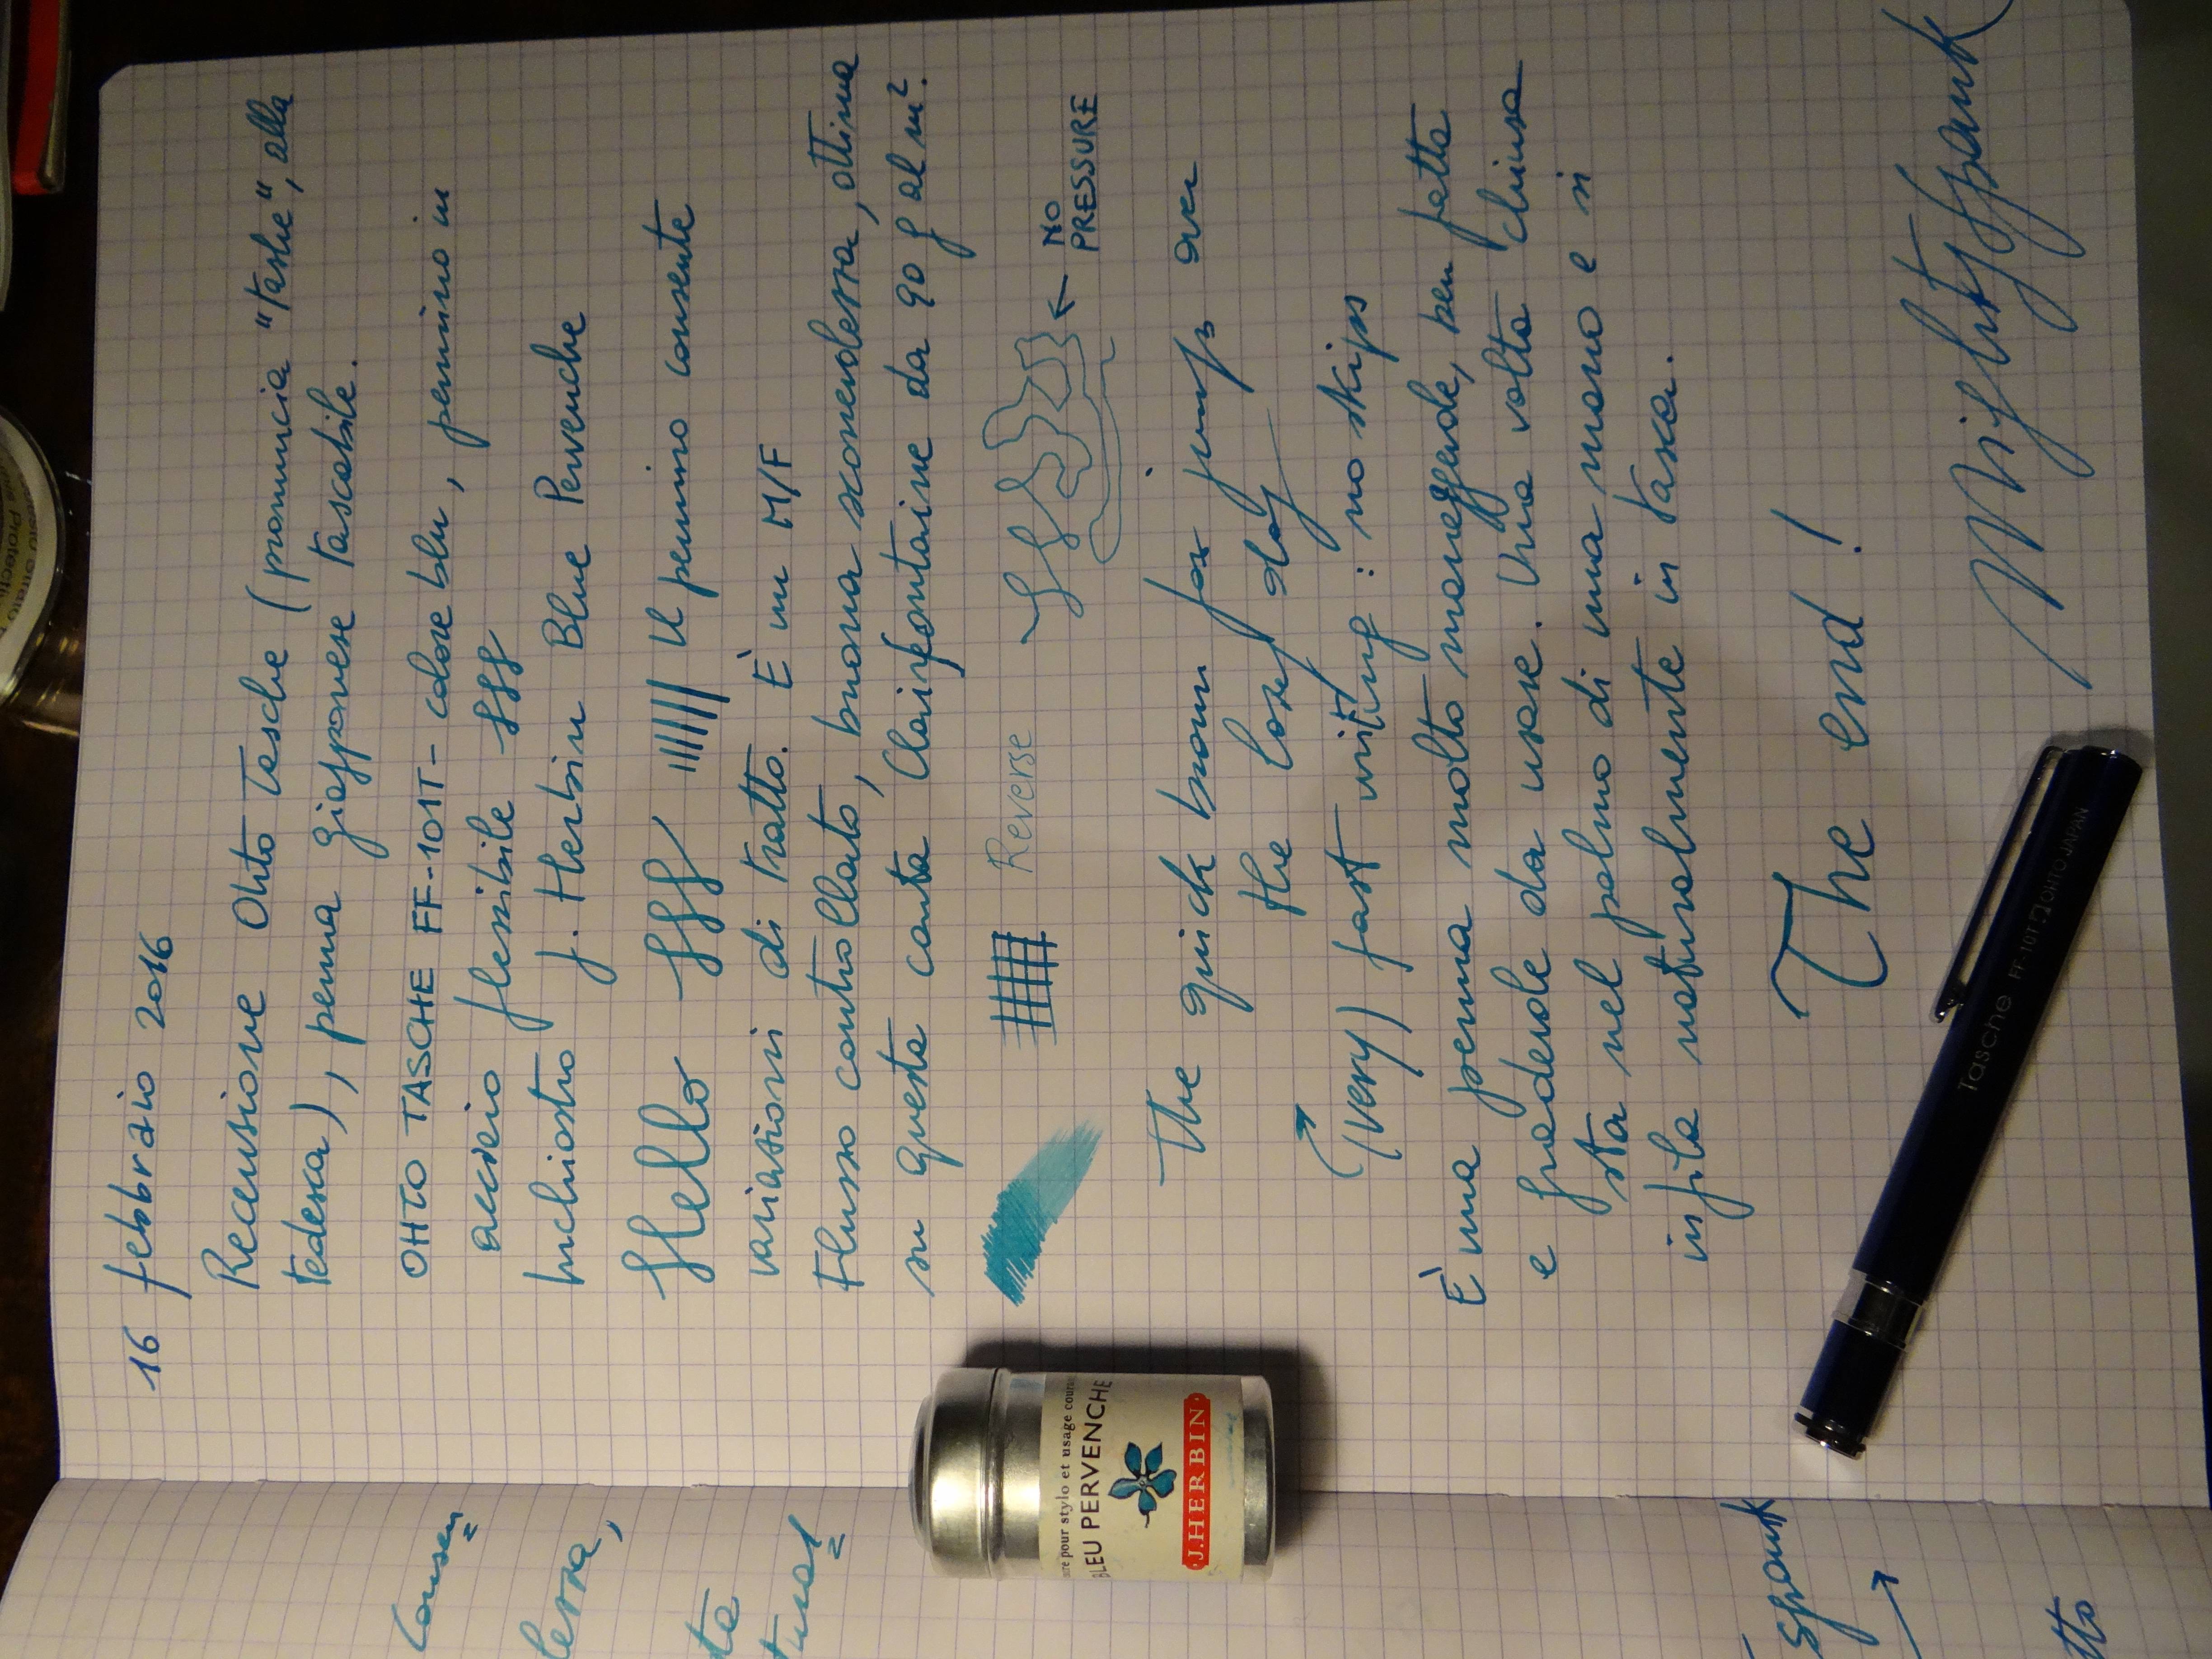 16 febbraio 2016
Recensione Ohto Tasche (pronuncia "tashe", alla
tedesca), penna giapponese tascabile.
OHTO TASCHE FF-10IT - colore blu, pennino in
acciaio flessibile fff
Inchiostro J. Herbin Blue Pervenche
Hello fff Il pennino consente
variazioni di tratto. È un M/F
Flusso controllato, buona scorrevolezza, ottima
su questa carta Clairefontaine da 90 g al m².
Reverse
← NO
PRESSURE
The quick brown fox jumps over
the lazy dog
(very) fast writing : no skips
È una penna molto maneggevole, ben fatta
e gradevole da usare. Una volta chiusa
sta nel palmo di una mano e si
infila naturalmente in tasca.
The end!
Tasche FF-10T OHTO JAPAN
pour stylo et usage
BLEU PERVENCHE
J.HERBIN